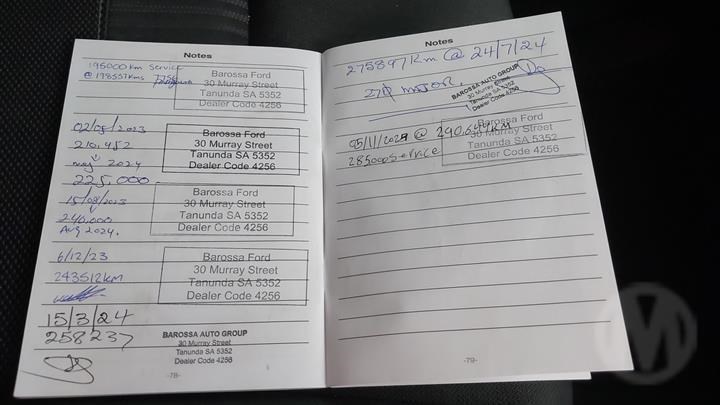 Notes
195000km Service
@ 198557kms
Barossa Ford
30 Murray Street
Tanunda SA 5352
Dealer Code 4256
02/05/2023
210,452
may 2024
225,000
Barossa Ford
30 Murray Street
Tanunda SA 5352
Dealer Code 4256
15/08/2023
240,000
Aug 2024.
Barossa Ford
30 Murray Street
Tanunda SA 5352
Dealer Code 4256
6/12/23
243512km
Barossa Ford
30 Murray Street
Tanunda SA 5352
Dealer Code 4256
15/3/24
258237
BAROSSA AUTO GROUP
30 Murray Street
Tanunda SA 5352
Dealer Code 4256
-78-
Notes
275897km @ 24/7/24
MAJOR
BAROSSA AUTO GROUP
30 Murray Street
Tanunda SA 5352
Dealer Code 4256
05/11/2024 @ 290,647km
285000 Service
Barossa Ford
30 Murray Street
Tanunda SA 5352
Dealer Code 4256
-79-